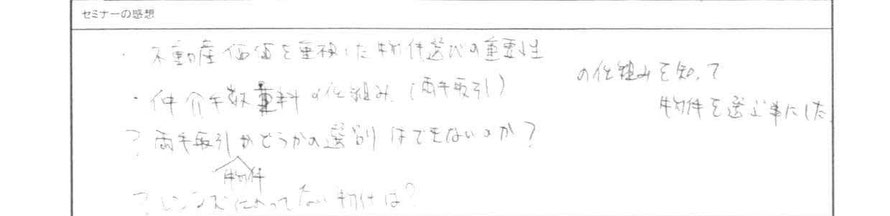 セミナーの感想
・不動産価値を重視した物件選びの重要性
・仲介手数料の仕組み(両手取引)
の仕組みを知って
物件を選ぶ事にした
? 両手取引かどうかの選別はできないのか?
物件
? レインズにのってない物件は?